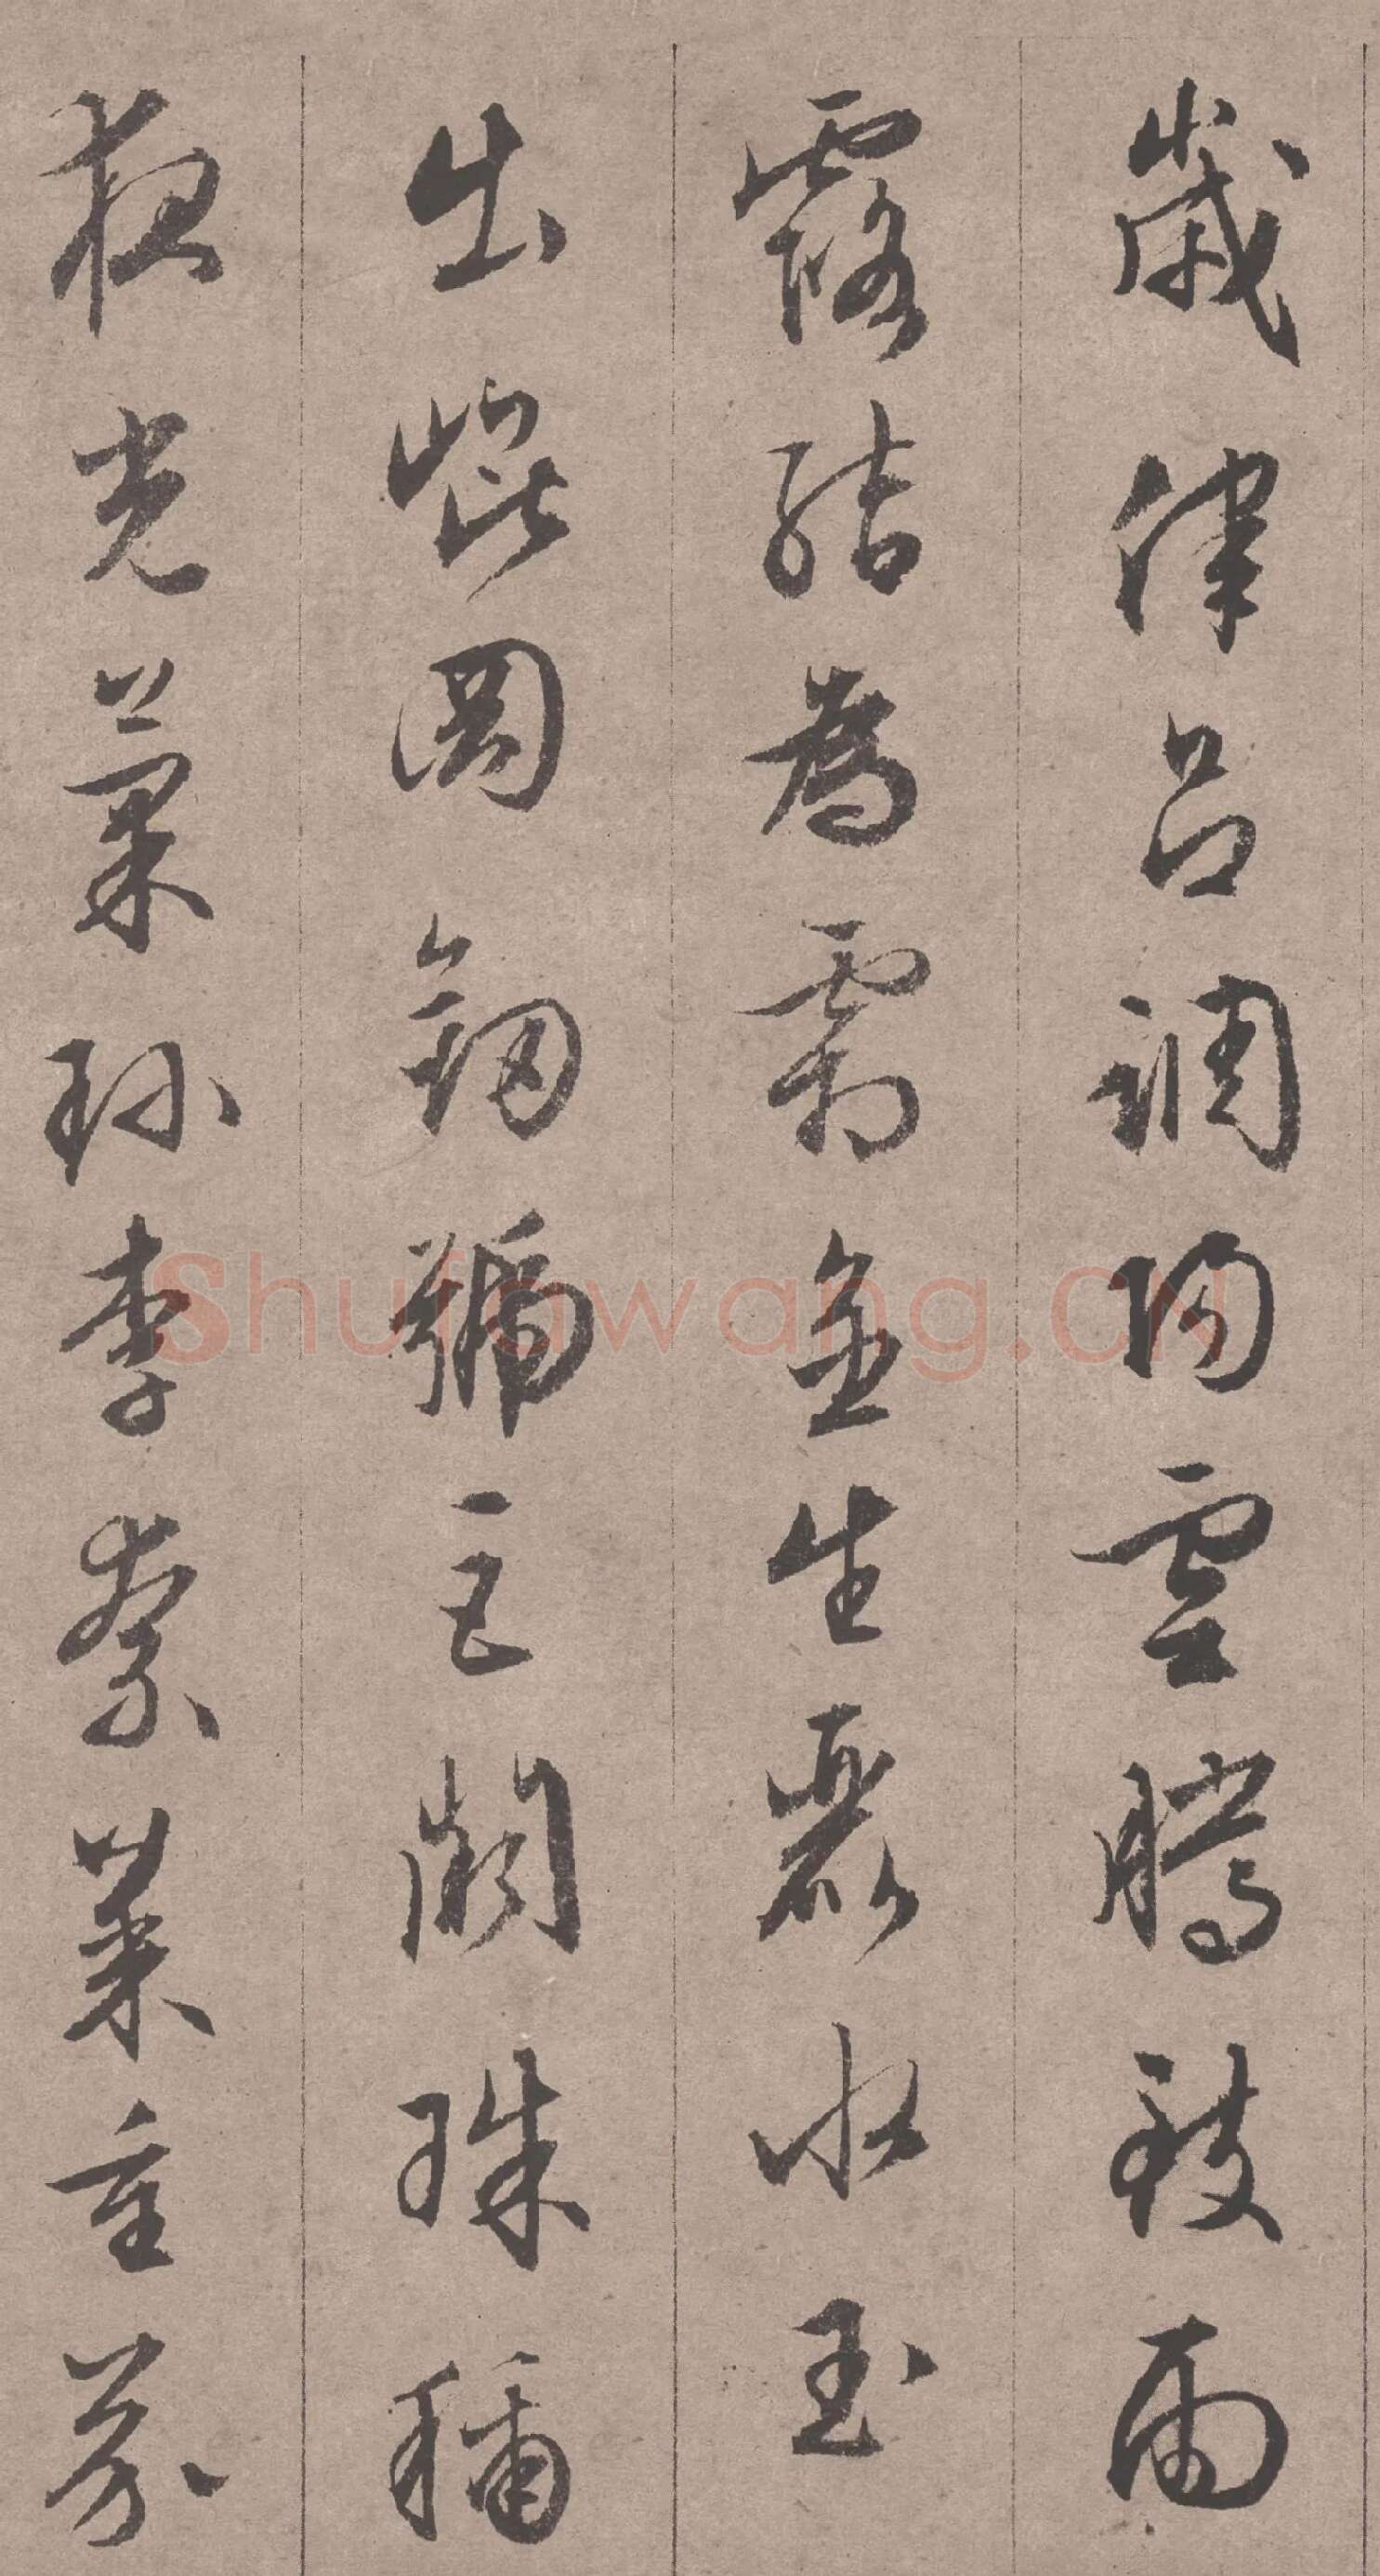 歲律呂調陽雲騰致雨
露結為霜金生麗水玉
出崐岡劔號巨闕珠稱
夜光菓珍李柰菜重芥
Shufawang.CN